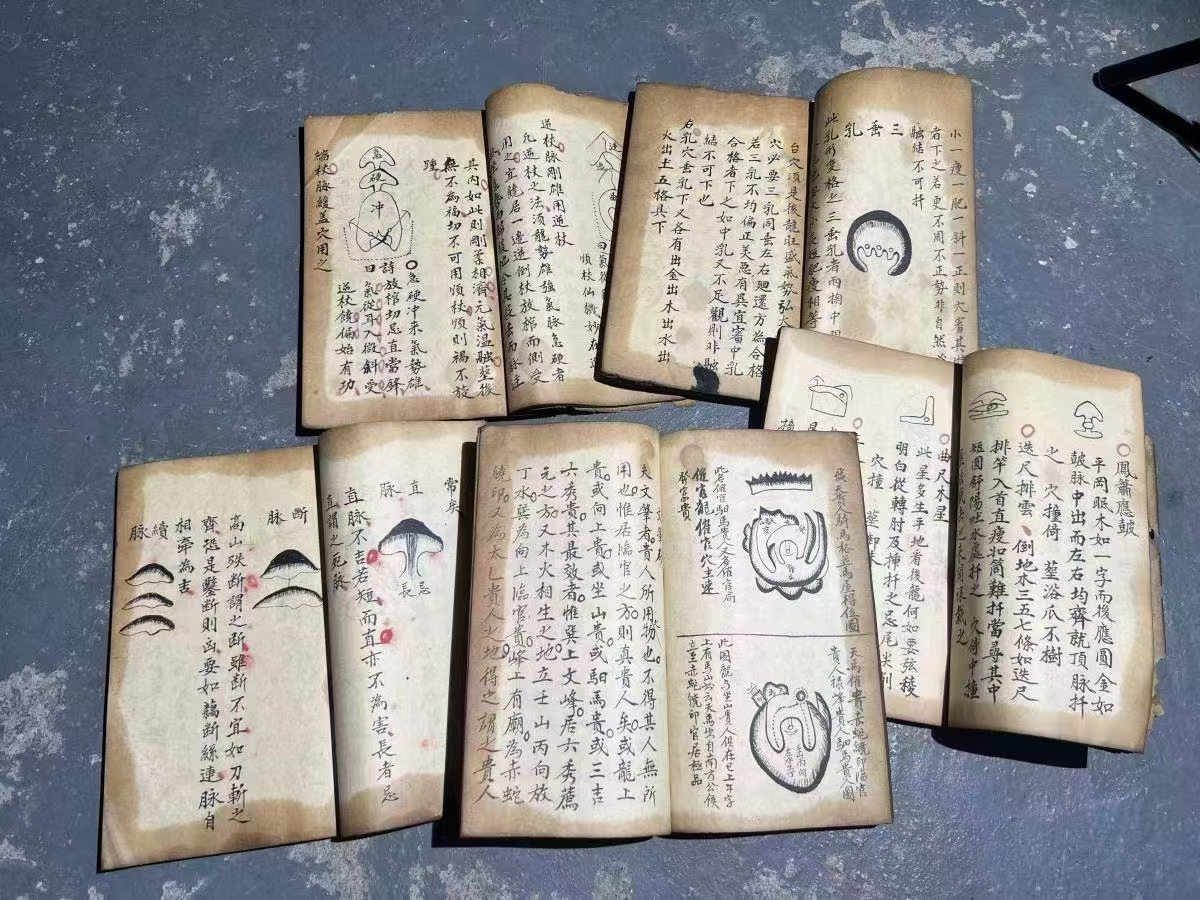 小一瘦一肥一斜一正則穴審其出
者下之若更不周不正勢非自然
融結不可扦
三垂乳
此乳形变格之三垂乳者兩掬中
台穴須是後龍旺盛氣勢弘
穴必要三乳同垂左右廻還方為合格
若三乳不均偏正美恶有異宜審中乳
合格者下之如中乳又不足觀則非融
結不可下也
右乳穴垂乳下又各有出金出木出水出
火出土五格具下
逆
曲
順杖仙機妙在
逆杖脉剛雄用逆杖
凡逆杖之法须龍勢雄強氣脉急硬者
用之宜饒居一邊逆倒杖放棺而側受
其内如此則剛柔相濟元氣温融塟後
無不為福切不可用順杖順則禍不旋
踵
急
硬
冲
急硬冲来氣勢雄
詩放棺切忌直當鋒
曰氣從耳入微斜受
逆杖饒偏始有功
縮杖脉緩盖穴用之
鳳簫應皷
平岡眠木如一字而後應圓金如
皷脉中出而左右均齊就頂脉扦
之 穴撞倚 塟浴瓜不樹
迭尺排雲 倒地木三五七條如迭尺
排竿入首直瘦如筒難扦當尋其中
短圓舒陽吐水處扦之 穴倚中撞
曲尺木星
此星多生平地看後龍何如要弦稜
明白從轉肘及揷扦之忌尾尖剑
穴撞
常矣
直脉
忌
長
直脉不吉若短而直亦不為害長者忌
直謂之死脉
断脉
高山跌断謂之断雖断不宜如刀斬之
齊恐是鑿断則凶要如藕断絲連脉自
相牽為吉
續脉
天馬催貴赤蛇繞印臨官
貴人禄馬貴人馹馬貴人圖
此圖龍与坐山貴人俱在巳上午字
上有馬山此云天馬出自南方公候
立至赤蛇繞印官居極品
此名催官馹馬貴人又名催官局
催官龍催官穴主速
發富貴
夫文筆者貴人所用物也不得其人無所
用也惟居臨官之方則真貴人矣或龍上
貴或向上貴或坐山貴或馹馬貴或三吉
六秀貴其最效者惟巽上文峰居六秀薦
元之方又木火相生之地立壬山丙向放
丁水巽為向上臨官貴峰上有廟為赤蛇
繞印又為太乙貴人之地得之謂之貴人